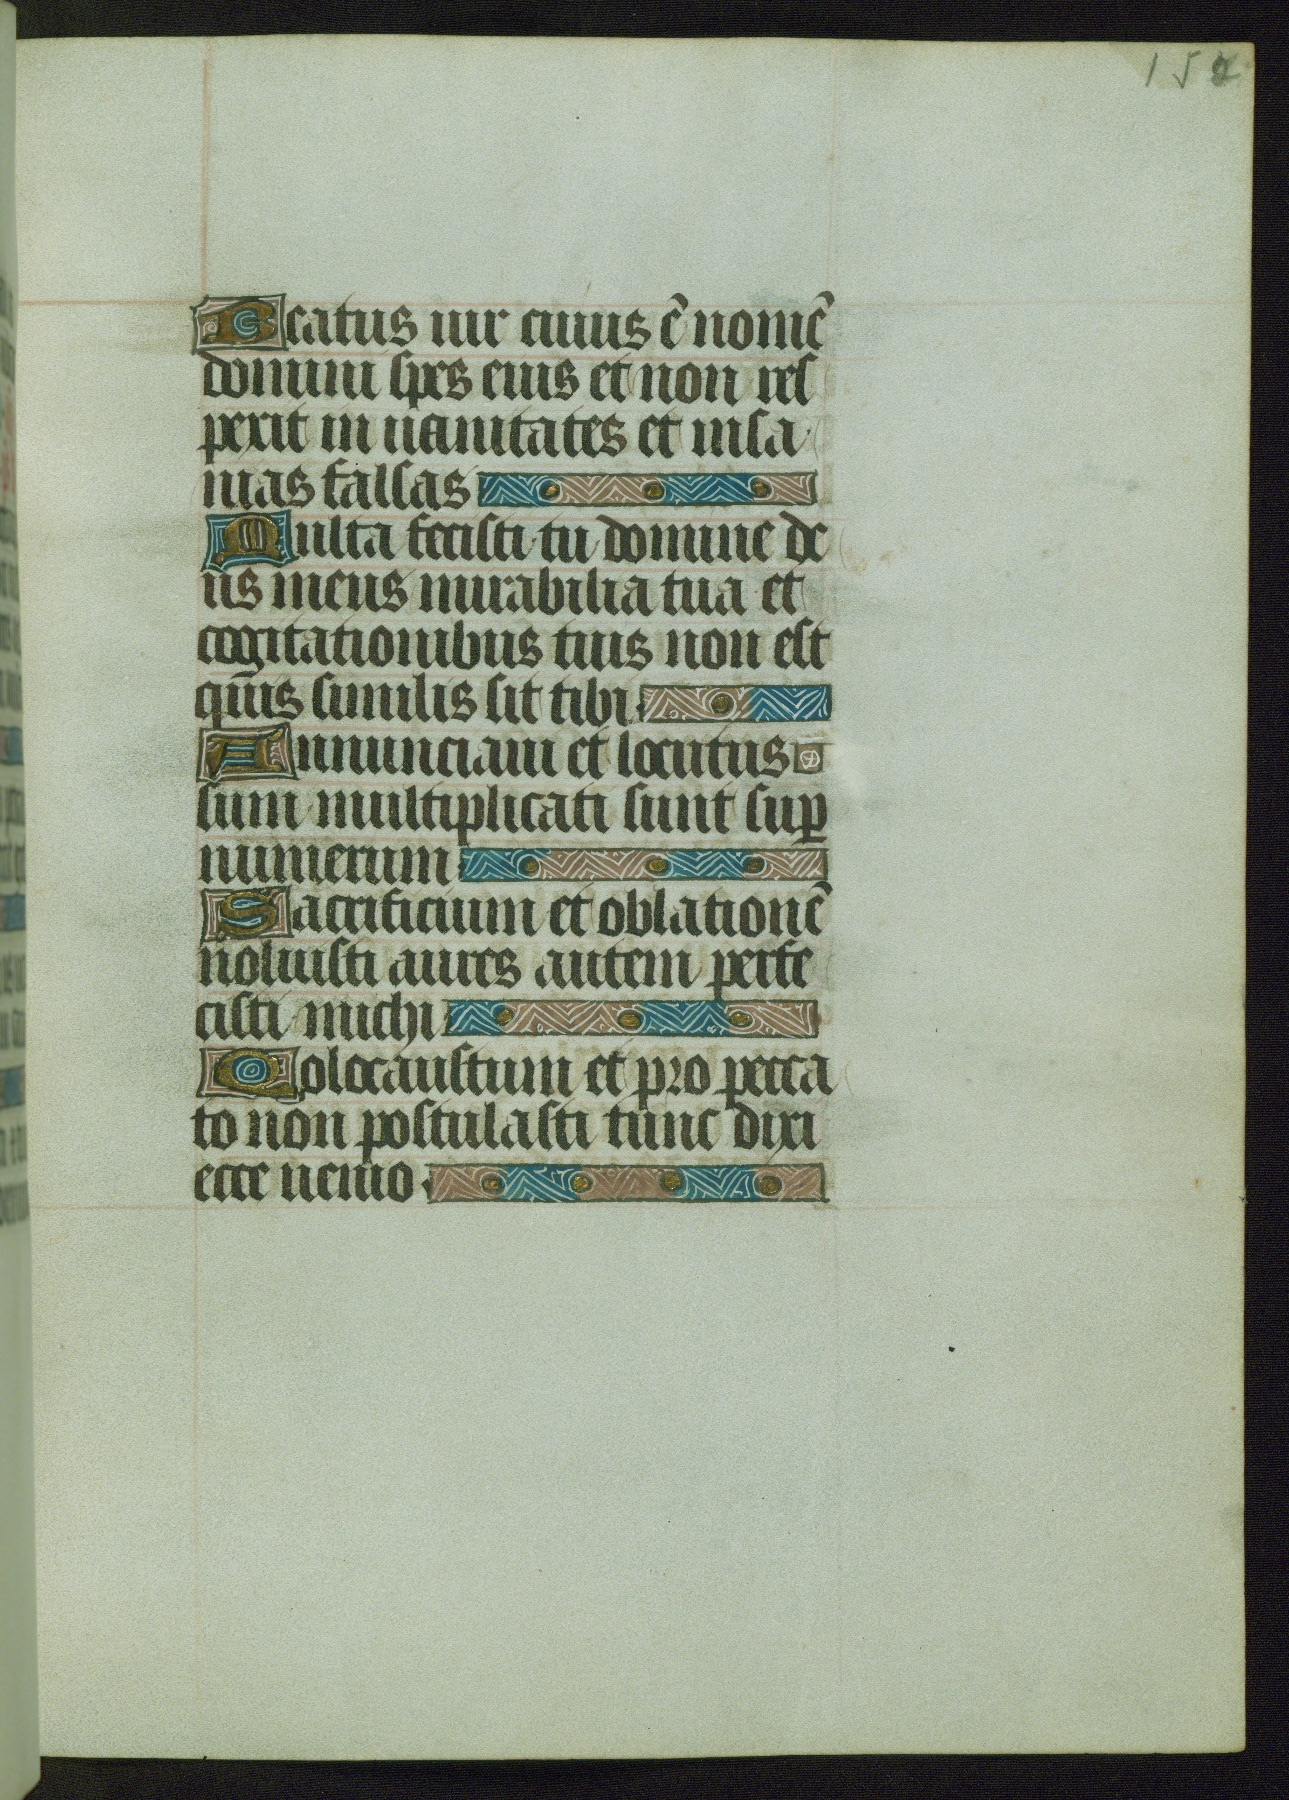 157
Beatus uir cuius ē nomē
domini spes eius et non res
pexit in uanitates et insa
nias falsas
Multa fecisti tu domine de
us meus mirabilia tua et
cogitationibus tuis non est
qͥuis similis sit tibi
Annunciaui et locutus
sum multiplicati sunt suꝑ
numerum
Sacrificium et oblationē
noluisti aures autem perfe
cisti michi
Olocaustum et pro pecca
to non postulasti tunc dixi
ecce uenio